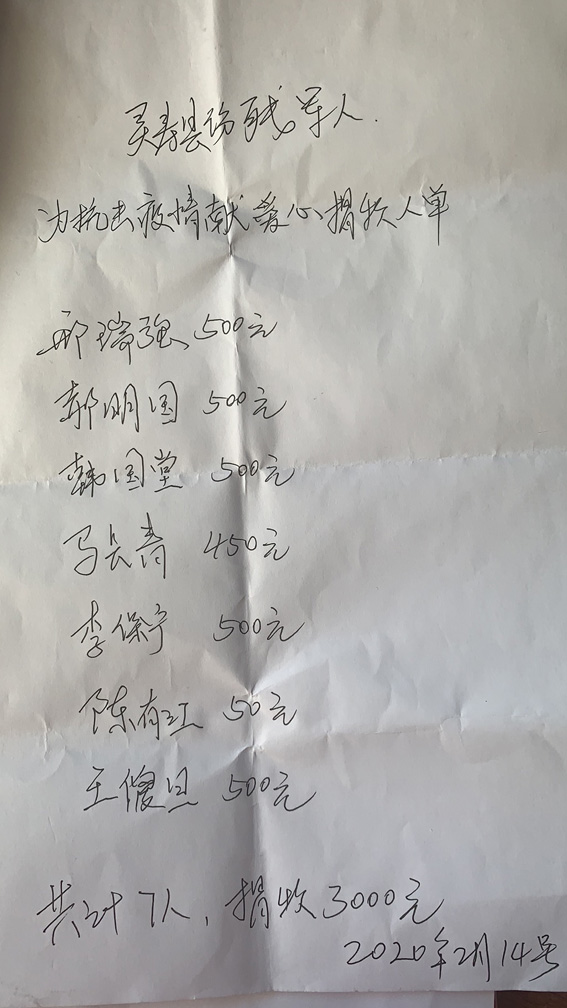 灵寿县伤残军人.
为抗击疫情献爱心捐款人单
邢瑞强 500元
郭明国 500元
韩国堂 500元
马长青 450元
李保宁 500元
陈有江 50元
王傻旦 500元
共计7人,捐款3000元
2020年2月14号